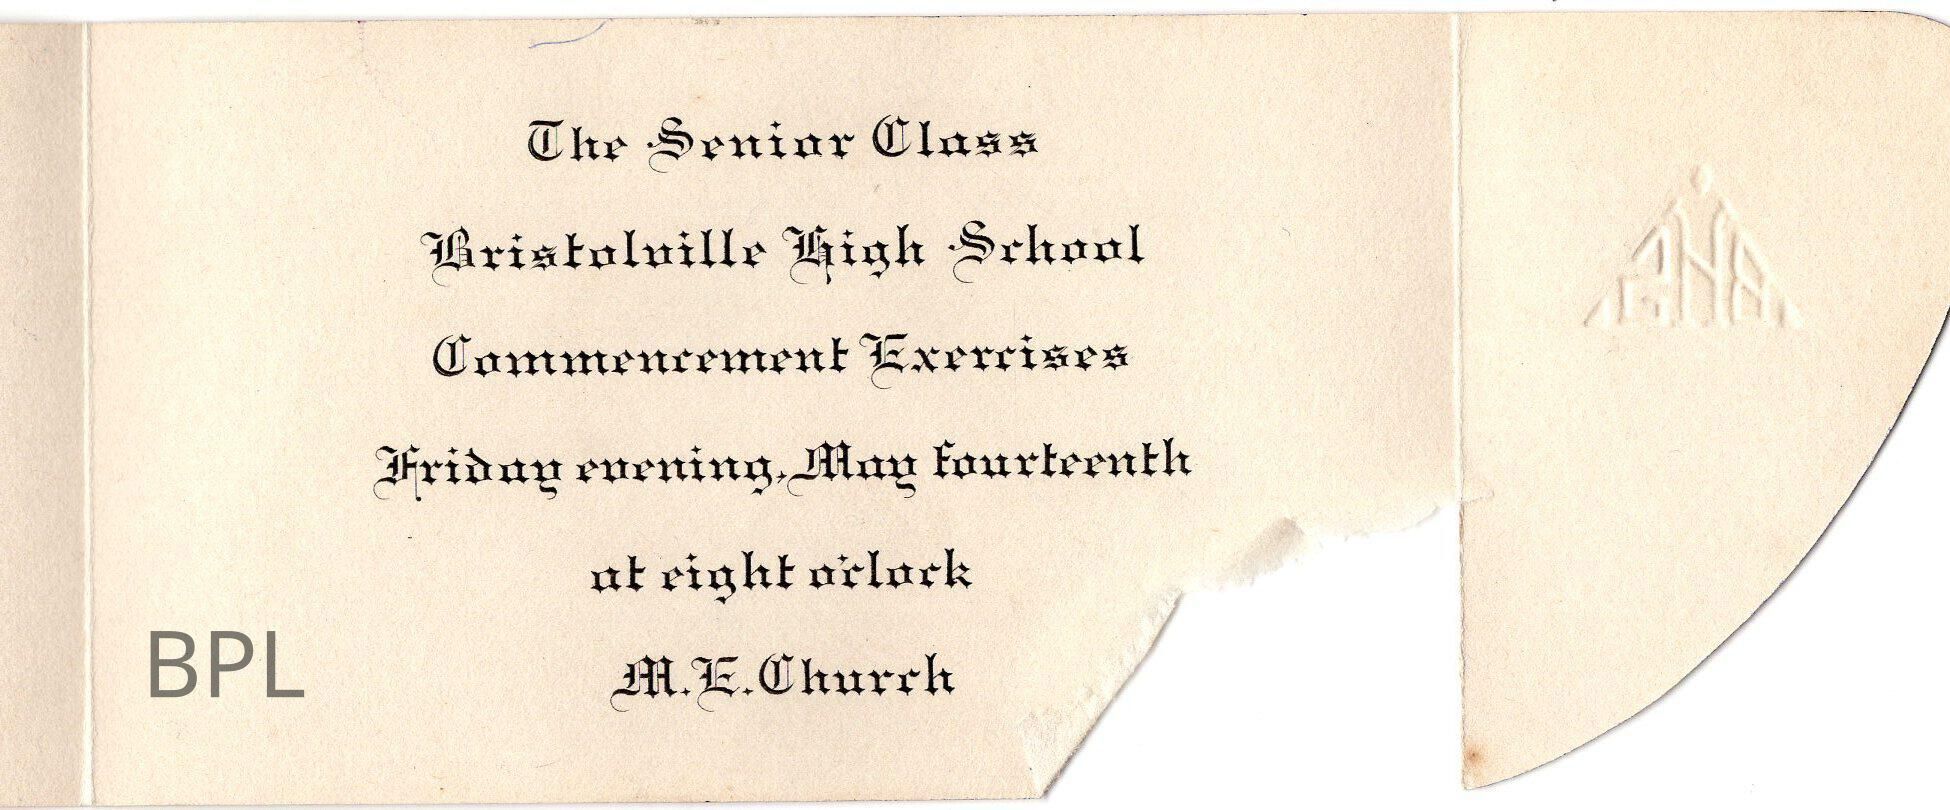 The Senior Class
Bristolville High School
Commencement Exercises
Friday evening, May fourteenth
at eight o'clock
M. E. Church
BPL